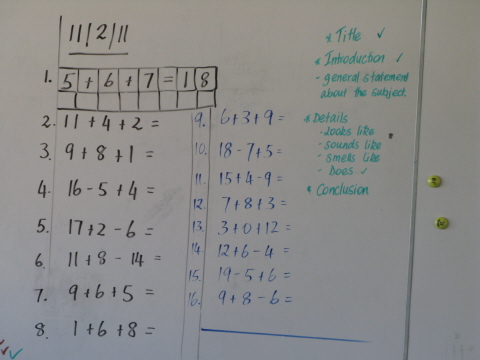 11/2/11
1. 5+6+7=18
2. 11+4+2=
3. 9+8+1=
4. 16-5+4=
5. 17+2-6=
6. 11+8-14=
7. 9+6+5=
8. 1+6+8=
9. 6+3+9=
10. 18-7+5=
11. 15+4-9=
12. 7+8+3=
13. 3+0+12=
14. 12+6-4=
15. 19-5+6=
16. 9+8-6=
* Title ✓
* Introduction ✓
- general statement
about the subject.
* Details
- Looks like
- sounds like
- smells like
- Does ✓
* Conclusion